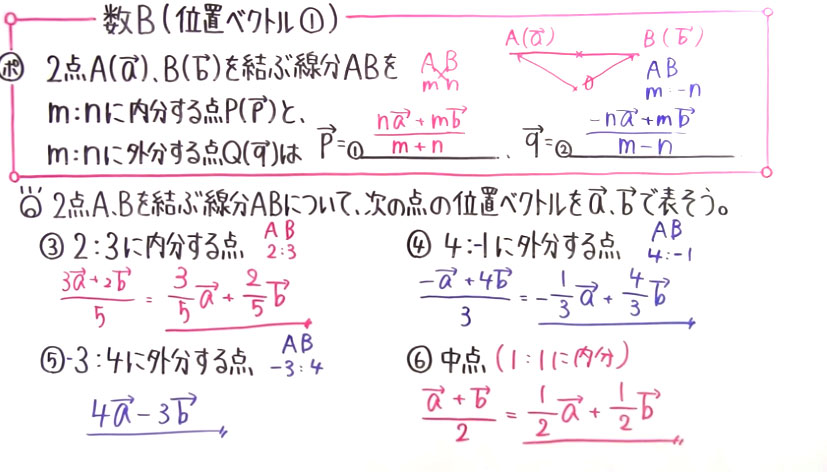 数B(位置ベクトル①)
ポ 2点A(a⃗)、B(b⃗)を結ぶ線分ABを
m:nに内分する点P(p⃗)と、
m:nに外分する点Q(q⃗)は p⃗=① (na⃗+mb⃗)/(m+n) 、q⃗=② (-na⃗+mb⃗)/(m-n)
A B
m n
A(a⃗) B(b⃗)
O
A B
m:-n
2点A、Bを結ぶ線分ABについて、次の点の位置ベクトルをa⃗、b⃗で表そう。
③ 2:3に内分する点 A B
2:3
(3a⃗+2b⃗)/5 = 3/5 a⃗ + 2/5 b⃗
④ 4:-1に外分する点 A B
4:-1
(-a⃗+4b⃗)/3 = -1/3 a⃗ + 4/3 b⃗
⑤ -3:4に外分する点 A B
-3:4
4a⃗-3b⃗
⑥ 中点 (1:1に内分)
(a⃗+b⃗)/2 = 1/2 a⃗ + 1/2 b⃗